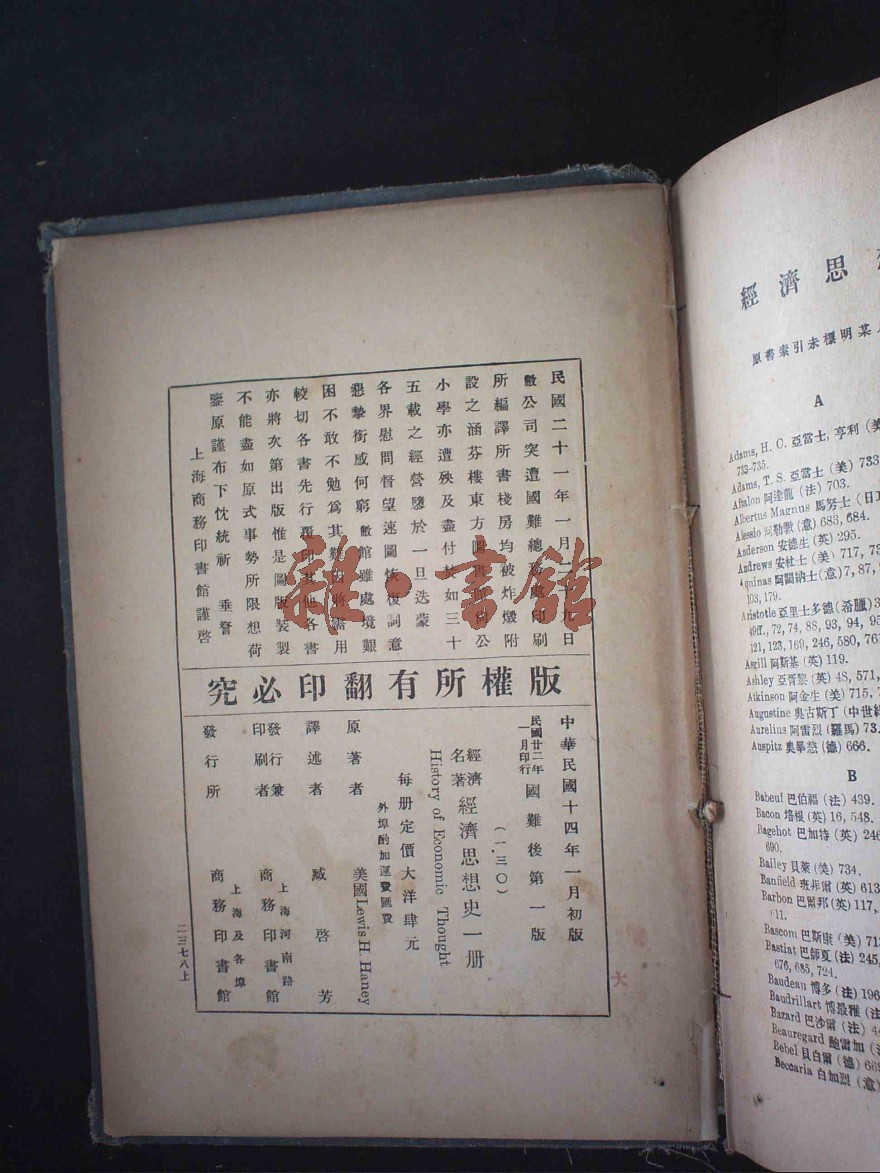 民國二十一年一月二十九日
敝公司突遭國難總務處印刷
所編譯所書棧房均被炸燬附
設之涵芬樓東方圖書館尚公
小學亦遭殃及盡付焚如三十
五載之經營隳於一旦迭蒙
各界慰問督望速圖恢復詞意
懇摯銜感何窮敝館雖處境艱
困不敢不勉爲其難因將需用
較切各書先行覆印其他各書
亦將次第出版惟是圖版裝製
不能盡如原式事勢所限想荷
鑒原謹布下忱統祈 垂詧
上海商務印書館謹啓
版權所有翻印必究
中華民國十四年一月初版
民國廿二年一月印行 國難後第一版
(一三〇)
經濟名著 經濟思想史一册
History of Economic Thought
每册定價大洋肆元
外埠酌加運費匯費
原著者 美國Lewis H. Haney
譯述者 臧啓芳
發行兼印刷者 上海河南路 商務印書館
發行所 上海及各埠 商務印書館
二三七八上
六
雜·書館
經濟思
原書索引未標明某
A
Adams, H. C. 亞當士, 亨利 (美
733-735.
Adams, T. S. 亞當士 (美) 733
Aftalion 阿達龍 (法) 703.
Albertus Magnus 馬努士 (日
Alessio 阿勒敦 (意) 683, 684.
Anderson 安德生 (英) 295.
Andrews 安杜士 (美) 717, 73
Aquinas 阿闊納士 (意) 7, 87, 9
103, 179.
Aristotle 亞里士多德 (希臘) 3
49ff., 72, 74, 88, 93, 94, 95
121, 123, 169, 246, 580, 76
Asgill 阿斯基 (英) 119.
Ashley 亞胥黎 (英) 48, 571,
Atkinson 阿金生 (美) 715, 7
Augustine 奧古斯丁 (中世紀
Aurelius 阿雷烈 (羅馬) 73.
Auspitz 奧畢慈 (德) 666.
B
Babeuf 巴伯福 (法) 439.
Bacon 培根 (英) 16, 548.
Bagehot 巴加特 (英) 246
690.
Bailey 貝萊 (美) 734.
Banfield 班菲爾 (英) 613
Barbon 巴爾邦 (英) 117,
Bascom 巴斯康 (美) 71
Bastiat 巴師夏 (法) 245,
676, 685, 724.
Baudeau 博多 (法) 196
Baudrillart 博最雅 (法
Bazard 巴沙爾 (法) 4
Beauregard 鮑雷加 (
Bebel 貝白爾 (德) 669
Beccaria 白加烈 (意)